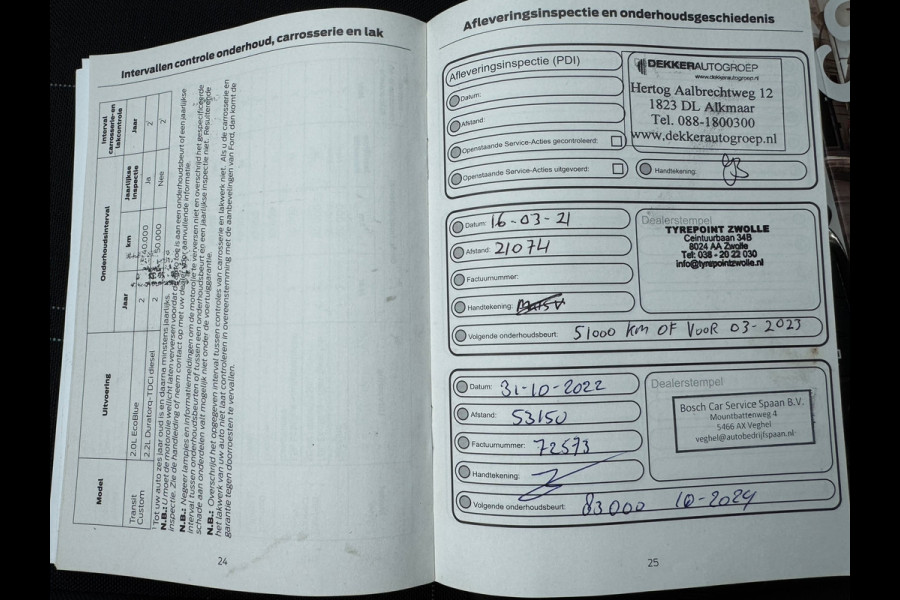 Intervallen controle onderhoud, carrosserie en lak
Model
Uitvoering
Onderhoudsinterval
Interval carrosserie-en lakcontrole
Jaar
km
Jaarlijkse inspectie
Jaar
Transit Custom
2.0L EcoBlue
2
60.000
Ja
2
2.2L Duratorq-TDCI diesel
2
50.000
Nee
2
Tot uw auto zes jaar oud is en daarna minstens jaarlijks.
N.B.: U moet de motorolie wellicht laten verversen voordat de auto toe is aan een onderhoudsbeurt of een jaarlijkse
inspectie. Zie de handleiding of neem contact op met uw dealer voor aanvullende informatie.
N.B.: Negeer lampjes en informatiemeldingen om de motorolie te verversen niet en overschrijd het gespecificeerde
interval tussen onderhoudsbeurten of tussen een onderhoudsbeurt en een jaarlijkse inspectie niet. Resulterende
schade aan onderdelen valt mogelijk niet onder de voertuiggarantie.
N.B.: Overschrijd het opgegeven interval tussen controles van carrosserie en lakwerk niet. Als u de carrosserie en
het lakwerk van uw auto niet laat controleren in overeenstemming met de aanbevelingen van Ford, dan komt de
garantie tegen doorroesten te vervallen.
24
Afleveringsinspectie en onderhoudsgeschiedenis
Afleveringsinspectie (PDI)
Datum:
Afstand:
Openstaande Service-Acties gecontroleerd:
Openstaande Service-Acties uitgevoerd:
DEKKERAUTOGROEP
www.dekkerautogroep.nl
Hertog Aalbrechtweg 12
1823 DL Alkmaar
Tel. 088-1800300
www.dekkerautogroep.nl
Handtekening:
Datum: 16-03-21
Afstand: 21074
Factuurnummer:
Handtekening:
Volgende onderhoudsbeurt: 51000 km OF VOOR 03-2023
Dealerstempel
TYREPOINT ZWOLLE
Ceintuurbaan 34B
8024 AA Zwolle
Tel: 038 - 20 22 030
info@tyrepointzwolle.nl
Datum: 31-10-2022
Afstand: 53150
Factuurnummer: 72573
Handtekening:
Volgende onderhoudsbeurt: 83000 10-2024
Dealerstempel
Bosch Car Service Spaan B.V.
Mountbattenweg 4
5466 AX Veghel
veghel@autobedrijfspaan.nl
25